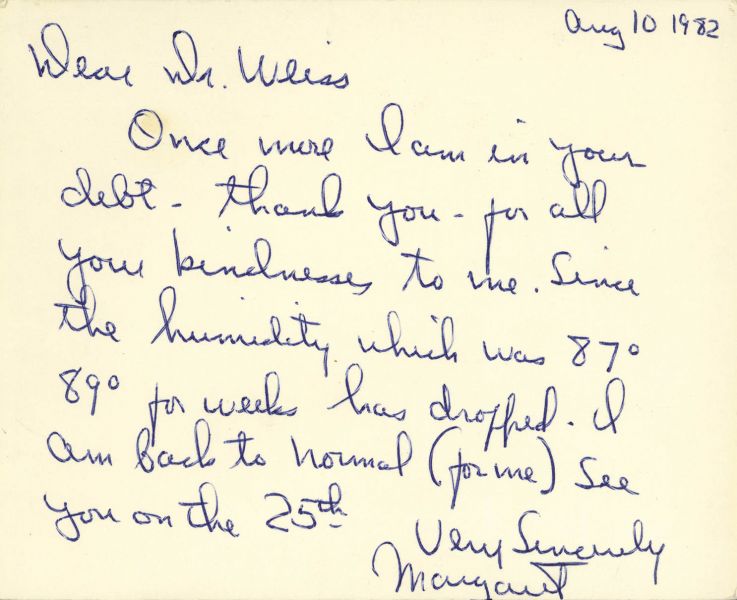 Aug 10 1982
Dear Dr. Weiss
Once more I am in your
debt - thank you - for all
your kindnesses to me. Since
the humidity which was 87°
89° for weeks has dropped. I
am back to normal (for me) See
you on the 25th
Very Sincerely
Margaret